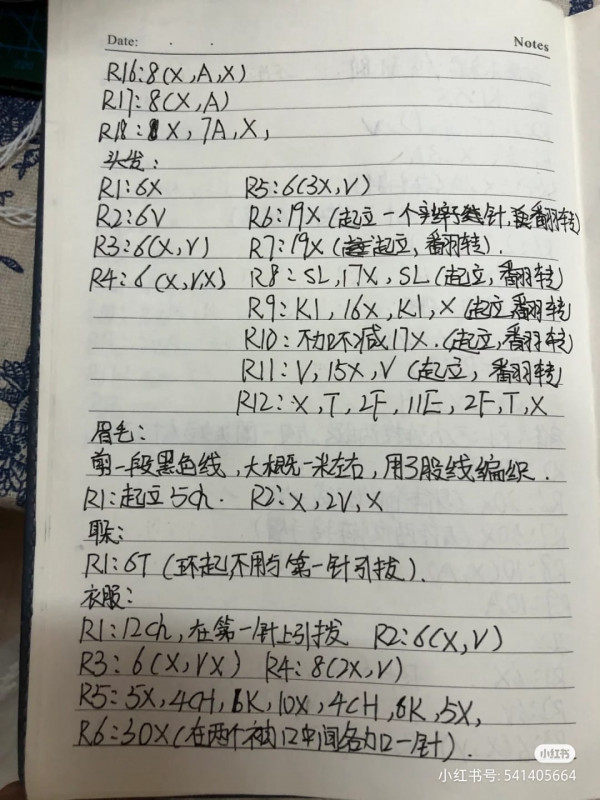 Date: . .
Notes
R16:8(X,A,X)
R17:8(X,A)
R18: X,7A,X,
头发:
R1:6X R5:6(3X,V)
R2:6V R6:19X(起立一个辫子针,翻转)
R3:6(X,V) R7:19X(起立,翻转).
R4:6(X,V,X) R8:SL,17X,SL(起立,翻转)
R9:K1,16X,K1,X(起立,翻转)
R10:不加不减17X.(起立,翻转)
R11:V,15X,V(起立,翻转)
R12:X,T,2F,11E,2F,T,X
眉毛:
剪一段黑色线,大概一米左右,用3股线编织.
R1:起立5ch. R2:X,2V,X
耳朵:
R1:6T(环起,不用与第一针引拔).
衣服:
R1:12ch,在第一针上引拨 R2:6(X,V)
R3:6(X,VX) R4:8(2X,V)
R5:5X,4CH,6K,10X,4CH,6K,5X,
R6:30X(在两个袖口中间各加一针).
小红书
小红书号:541405664